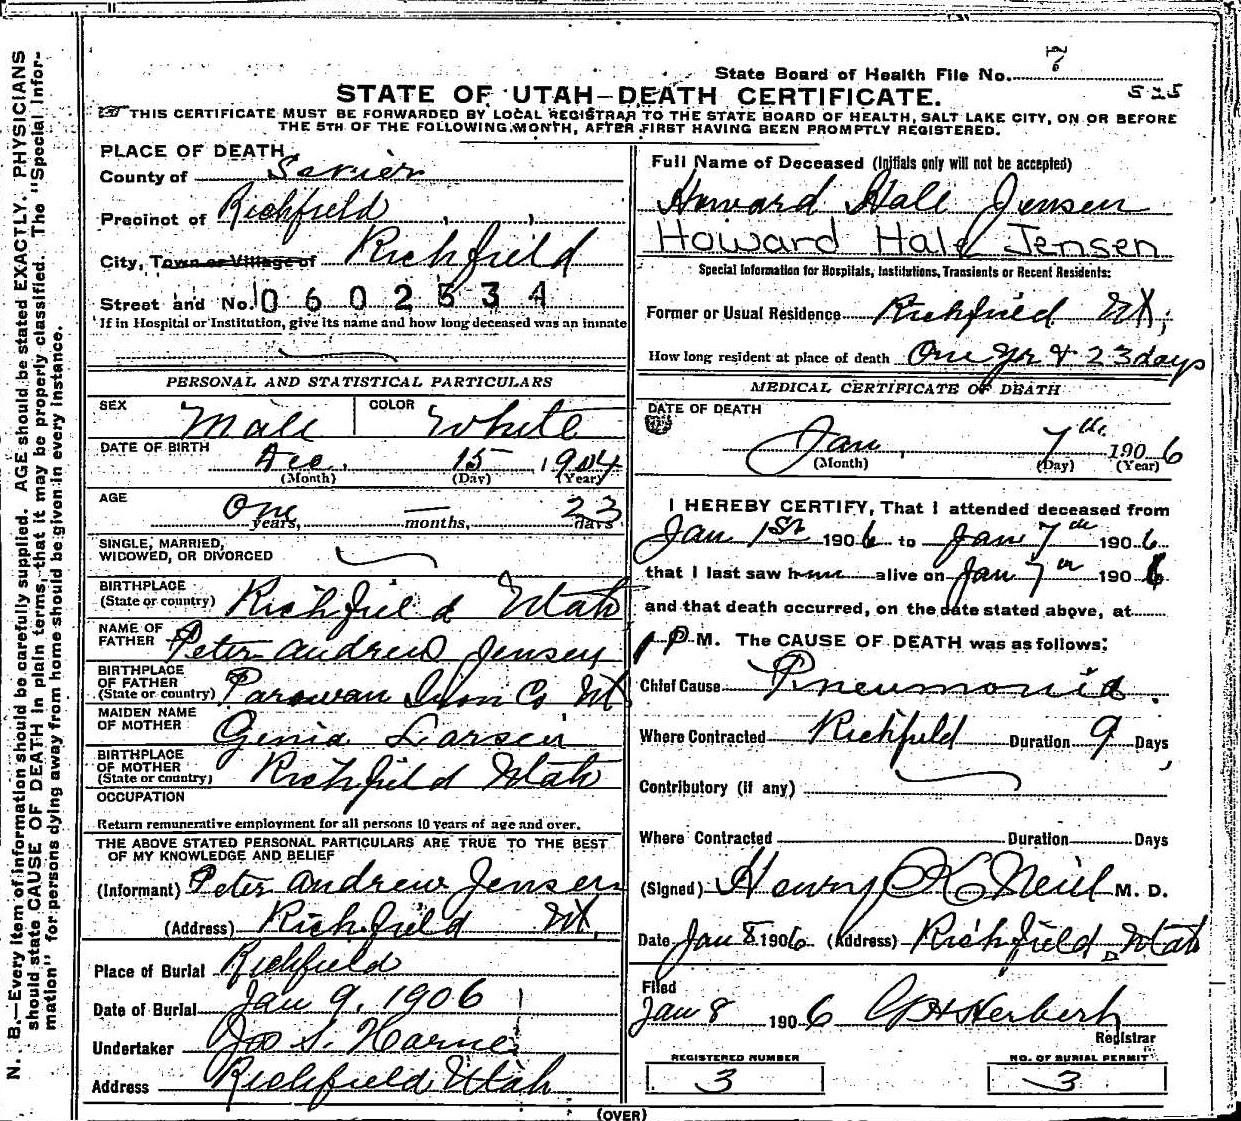 State Board of Health File No. 7
525
STATE OF UTAH—DEATH CERTIFICATE.
THIS CERTIFICATE MUST BE FORWARDED BY LOCAL REGISTRAR TO THE STATE BOARD OF HEALTH, SALT LAKE CITY, ON OR BEFORE
THE 5TH OF THE FOLLOWING MONTH, AFTER FIRST HAVING BEEN PROMPTLY REGISTERED.
N. B.—Every item of information should be carefully supplied. AGE should be stated EXACTLY. PHYSICIANS
should state CAUSE OF DEATH in plain terms, that it may be properly classified. The "Special Infor-
mation" for persons dying away from home should be given in every instance.
PLACE OF DEATH
County of Sevier
Precinct of Richfield
City, Town or Village of Richfield
Street and No. 0602534
If in Hospital or Institution, give its name and how long deceased was an inmate
PERSONAL AND STATISTICAL PARTICULARS
SEX Male COLOR White
DATE OF BIRTH Dec. 15 1904
(Month) (Day) (Year)
AGE One years, — months, 23 days
SINGLE, MARRIED,
WIDOWED, OR DIVORCED
BIRTHPLACE
(State or country) Richfield Utah
NAME OF
FATHER Peter Andrew Jensen
BIRTHPLACE
OF FATHER
(State or country) Parowan Iron Co Ut
MAIDEN NAME
OF MOTHER Genia Larsen
BIRTHPLACE
OF MOTHER
(State or country) Richfield Utah
OCCUPATION
Return remunerative employment for all persons 10 years of age and over.
THE ABOVE STATED PERSONAL PARTICULARS ARE TRUE TO THE BEST
OF MY KNOWLEDGE AND BELIEF
(Informant) Peter Andrew Jensen
(Address) Richfield Ut.
Place of Burial Richfield
Date of Burial Jan 9, 1906
Undertaker Jos S. Horne
Address Richfield, Utah
Full Name of Deceased (Initials only will not be accepted)
Howard Hale Jensen
Howard Hale Jensen
Special Information for Hospitals, Institutions, Transients or Recent Residents:
Former or Usual Residence Richfield Ut;
How long resident at place of death One Yr & 23 days
MEDICAL CERTIFICATE OF DEATH
DATE OF DEATH
Jan, 7th 1906
(Month) (Day) (Year)
I HEREBY CERTIFY, That I attended deceased from
Jan 1st 1906 to Jan 7th 1906
that I last saw him alive on Jan 7th 1906
and that death occurred, on the date stated above, at
1 P M. The CAUSE OF DEATH was as follows:
Chief Cause Pneumonia.
Where Contracted Richfield Duration 9 Days
Contributory (if any)
Where Contracted Duration Days
(Signed) Henry K Neill M. D.
Date Jan 8 1906 (Address) Richfield, Utah
Filed
Jan 8 1906 G H Herbert
Registrar
REGISTERED NUMBER
3
NO. OF BURIAL PERMIT
3
(OVER)